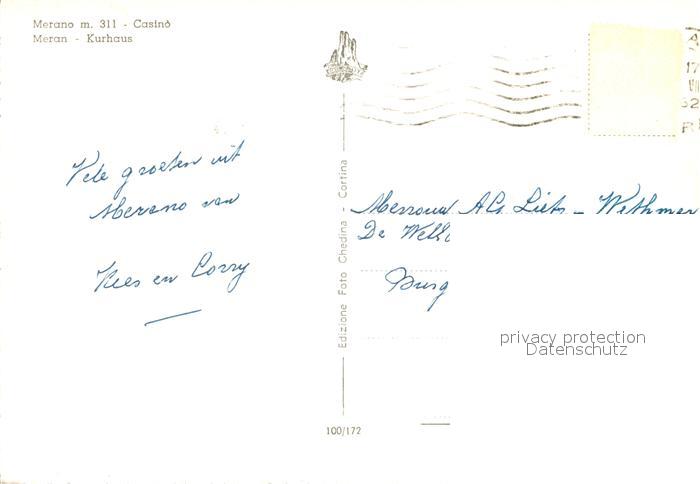 Merano m. 311 - Casinò
Meran - Kurhaus
Vele groeten uit
Merano van
Kees en Corry
Edizione Foto Ghedina - Cortina
Mevrouw
De
Burg
privacy protection
Datenschutz
100/172